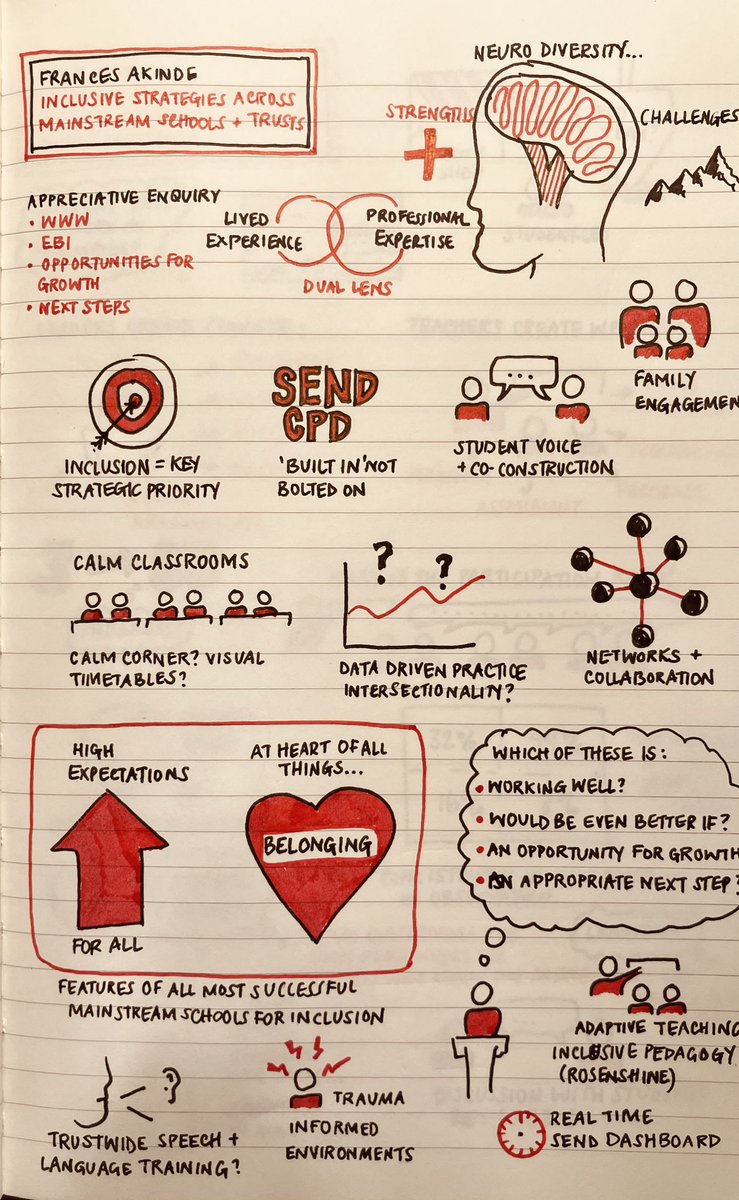 FRANCES AKINDE
INCLUSIVE STRATEGIES ACROSS
MAINSTREAM SCHOOLS + TRUSTS
NEURO DIVERSITY...
STRENGTHS
+
CHALLENGES
APPRECIATIVE ENQUIRY
• WWW
• EBI
• OPPORTUNITIES FOR
GROWTH
• NEXT STEPS
LIVED
EXPERIENCE
PROFESSIONAL
EXPERTISE
DUAL LENS
FAMILY
ENGAGEMEN
INCLUSION = KEY
STRATEGIC PRIORITY
SEND
CPD
'BUILT IN' NOT
BOLTED ON
...
STUDENT VOICE
+ CO-CONSTRUCTION
CALM CLASSROOMS
CALM CORNER? VISUAL
TIMETABLES?
? ?
DATA DRIVEN PRACTICE
INTERSECTIONALITY?
NETWORKS +
COLLABORATION
HIGH
EXPECTATIONS
FOR ALL
AT HEART OF ALL
THINGS...
BELONGING
FEATURES OF ALL MOST SUCCESSFUL
MAINSTREAM SCHOOLS FOR INCLUSION
WHICH OF THESE IS:
• WORKING WELL?
• WOULD BE EVEN BETTER IF?
• AN OPPORTUNITY FOR GROWTH
• AN APPROPRIATE NEXT STEP?
ADAPTIVE TEACHING
INCLUSIVE PEDAGOGY
(ROSENSHINE)
?
TRUSTWIDE SPEECH +
LANGUAGE TRAINING?
TRAUMA
INFORMED
ENVIRONMENTS
REAL TIME
SEND DASHBOARD